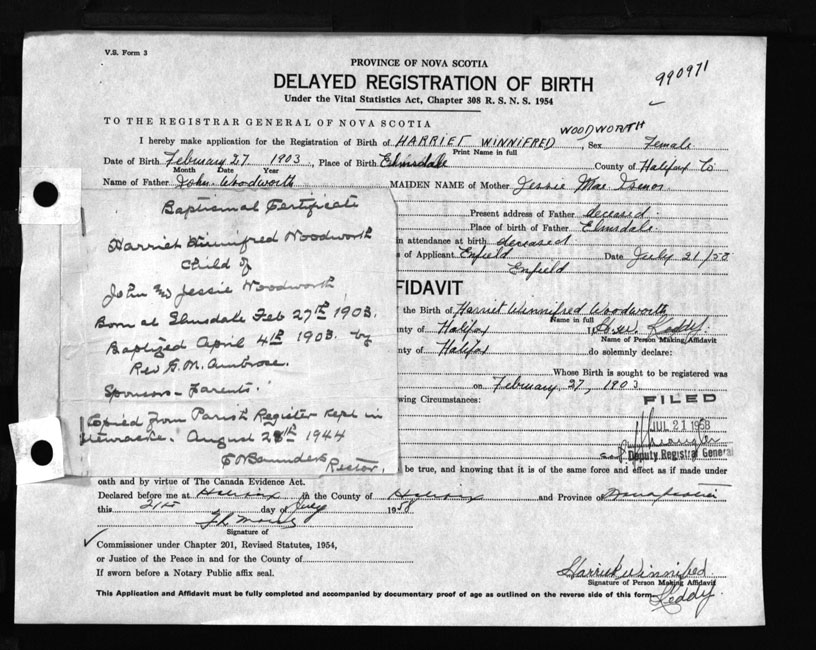 V.S. Form 3
990971
PROVINCE OF NOVA SCOTIA
DELAYED REGISTRATION OF BIRTH
Under the Vital Statistics Act, Chapter 308 R. S. N. S. 1954
TO THE REGISTRAR GENERAL OF NOVA SCOTIA
WOODWORTH
I hereby make application for the Registration of Birth of HARRIET WINNIFRED, Sex Female
Print Name in full
Date of Birth February 27 1903, Place of Birth Elmsdale County of Halifax Co
Month Date Year
Name of Father John Woodworth MAIDEN NAME of Mother Jessie Mae Isenor
Present address of Father deceased
Place of birth of Father Elmsdale
in attendance at birth deceased
s of Applicant Enfield Date July 21/58
Enfield
Baptismal Certificate
Harriet Winnifred Woodworth
Child of
John & Jessie Woodworth
Born at Elmsdale Feb 27th 1903.
Baptized April 4th 1903 by
Rev G. M. Ambrose.
Sponsors - Parents.
Copied from Parish Register Kept in
August 28th 1944
Saunders
Rector.
FIDAVIT
f the Birth of Harriet Winnifred Woodworth
Name in full
unty of Halifax, Keddy
Name of Person Making Affidavit
nty of Halifax do solemnly declare:
Whose Birth is sought to be registered was
on February 27, 1903
wing Circumstances:
FILED
JUL 21 1958
Deputy Registrar General
be true, and knowing that it is of the same force and effect as if made under
oath and by virtue of The Canada Evidence Act.
Declared before me at Halifax in the County of Halifax and Province of Nova Scotia
this 21st day of July 1958
Signature of
Commissioner under Chapter 201, Revised Statutes, 1954,
or Justice of the Peace in and for the County of
If sworn before a Notary Public affix seal.
Harriet Winnifred
Signature of Person Making Affidavit
Keddy
This Application and Affidavit must be fully completed and accompanied by documentary proof of age as outlined on the reverse side of this form